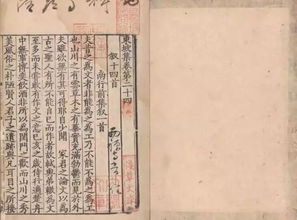 東坡集卷第二十四
叙十四首
南行前集叙一首
夫昔之為文者非能為之為工乃不能不為之為工
也山川之有雲草木之有華實充滿勃鬱而見於外
夫雖欲無有其可得耶自少聞家君之論文以為
古之聖人有所不能自已而作者故軾與弟轍為文
至多而未嘗敢有作文之意己亥之歲侍行適楚舟
中無事博弈飲酒非所以為閨門之歡而山川之秀
美風俗之朴陋賢人君子之遺跡與凡耳目之所接